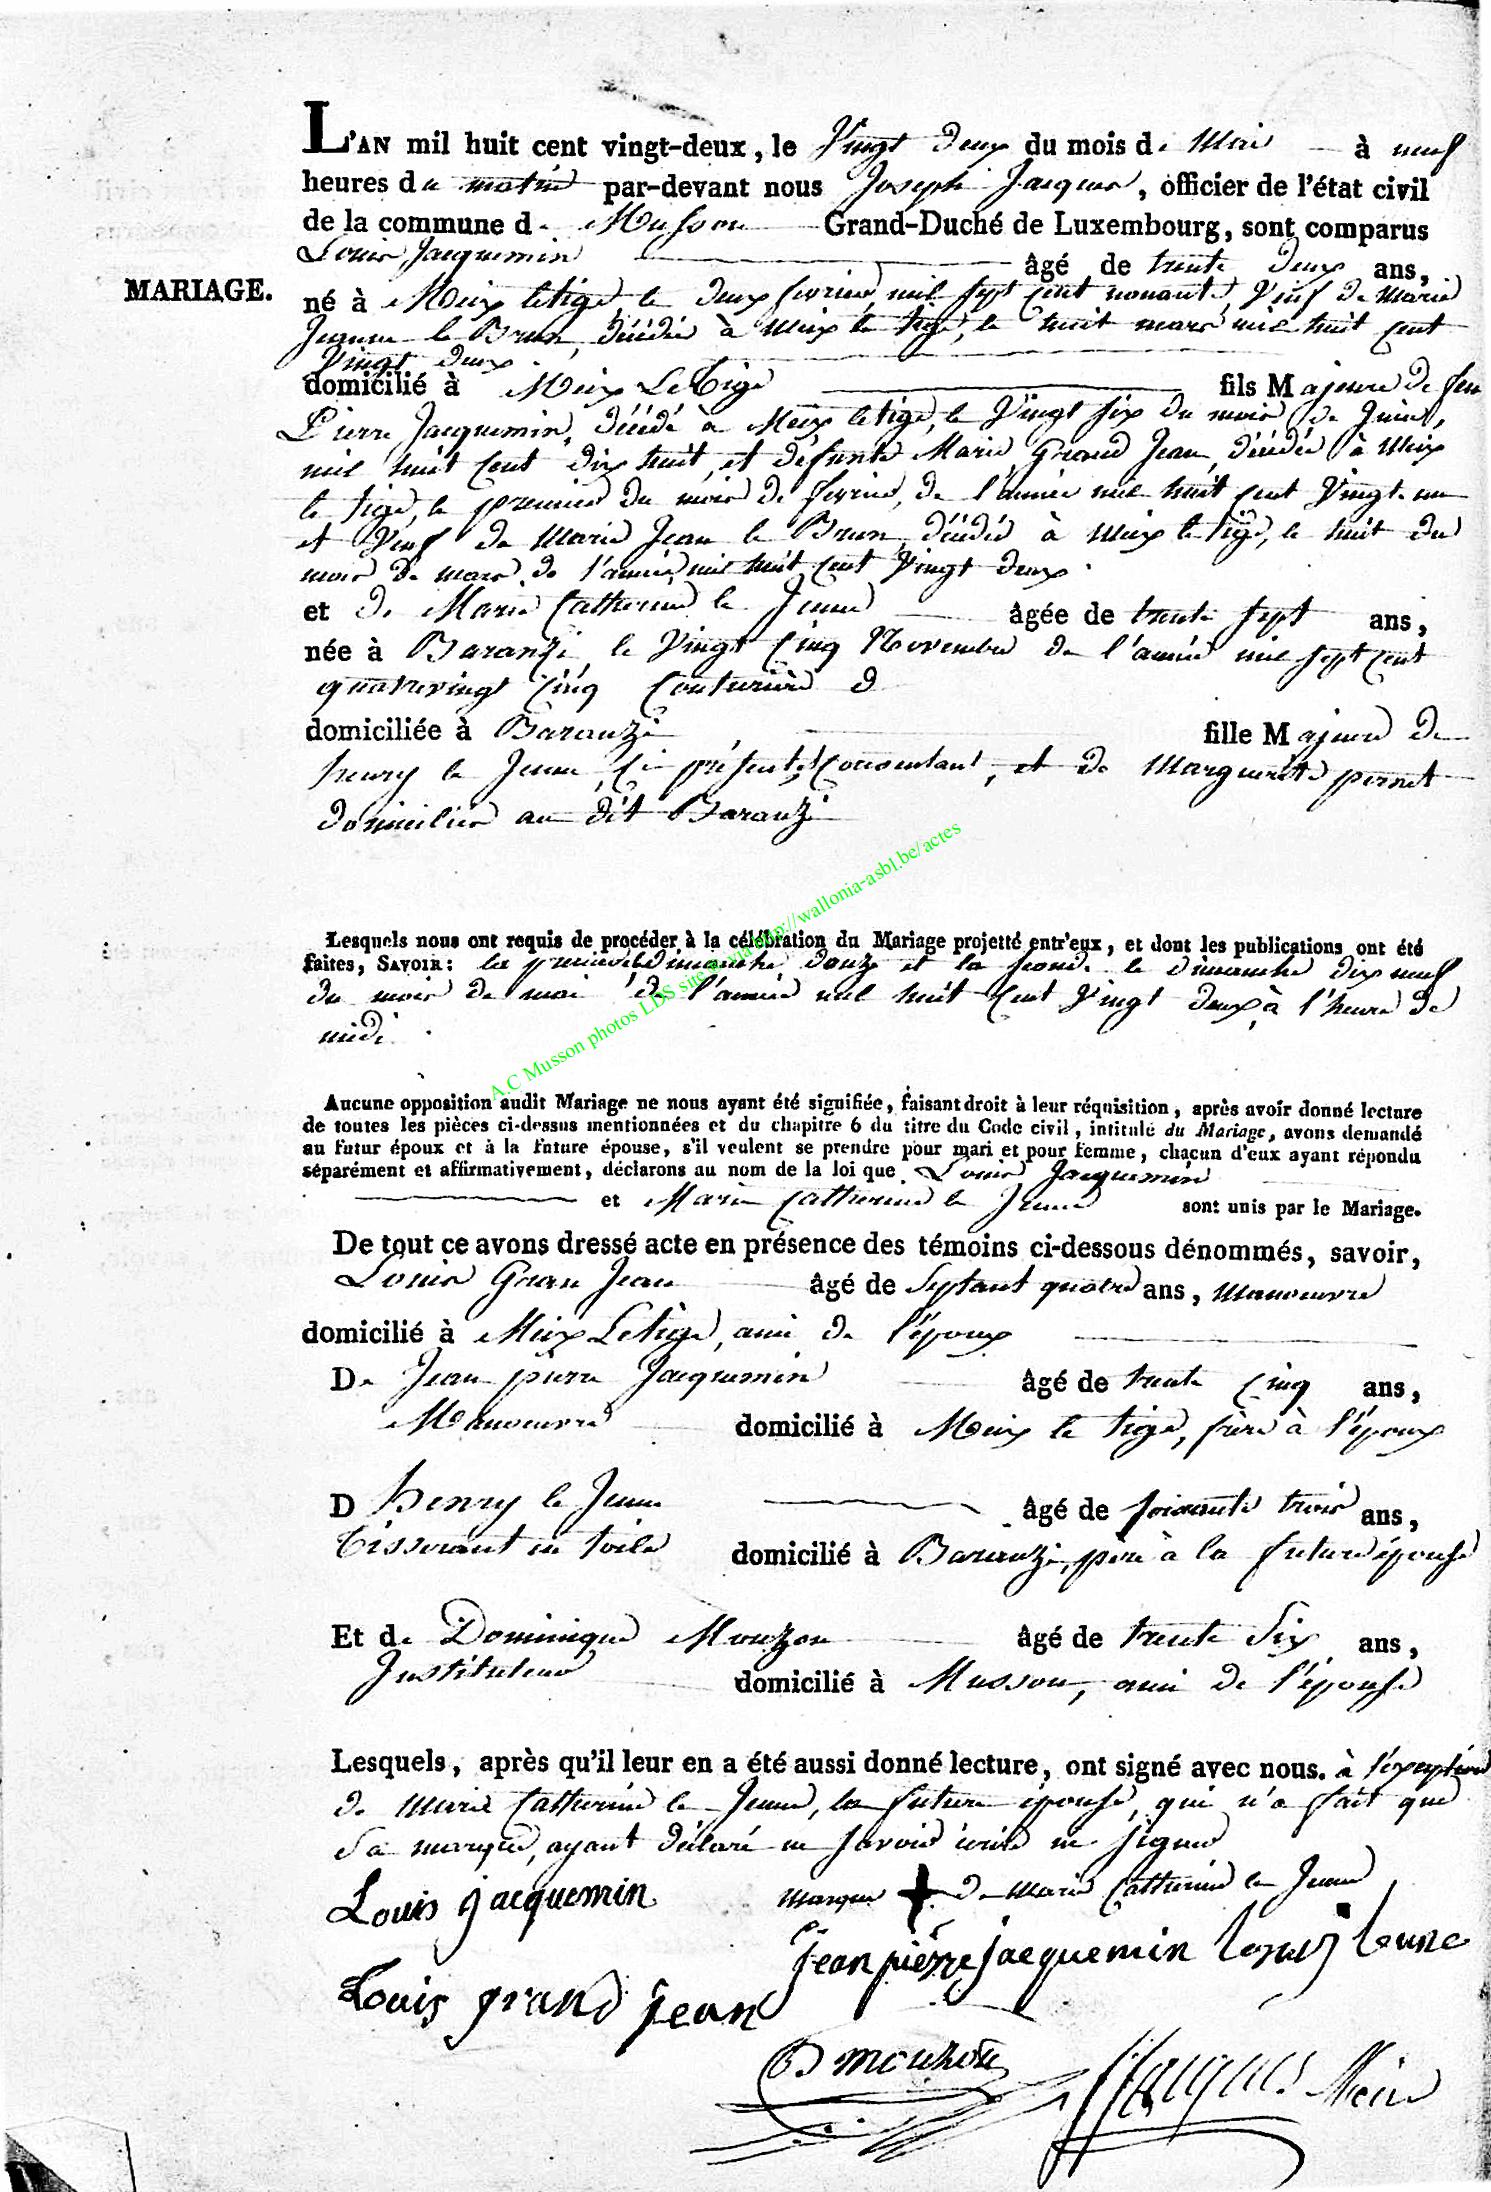 L'AN mil huit cent vingt-deux, le Vingt deux du mois de Mai à neuf
heures du matin par-devant nous Joseph Jacques, officier de l'état civil
de la commune de Musson Grand-Duché de Luxembourg, sont comparus
Louis Jacquemin âgé de trente deux ans,
MARIAGE.
né à Meix letige, le deux fevrier mil sept cent nonante, Veuf de Marie
Jeanne le Brun, décédée à Meix le tige, le huit mars mil huit cent
Vingt deux
domicilié à Meix Le Tige fils Majeure de feu
Pierre Jacquemin, décédé à Meix letige, le Vingt six du mois de Juin,
mil huit cent dix huit, et défunte Marie Grand Jean, décédée à Meix
le tige, le premier du mois de fevrier, de l'année mil huit cent Vingt un
et Veuf de Marie Jean le Brun, décédée à Meix le tige, le huit du
mois de mars de l'année mil huit cent Vingt deux.
et de Marie Catherine le Jeune âgée de trente sept ans,
née à Baranzi, le Vingt Cinq Novembre de l'année mil sept cent
quatrevingt cinq Couturière d
domiciliée à Baranzi fille Majeure de
henry le Jeune, ci présent, Consentant, et de Marguerite pernet
domiciliés au dit Baranzi
Lesquels nous ont requis de procéder à la célébration du Mariage projetté entr'eux, et dont les publications ont été
faites, SAVOIR: la première dimanche douze et la seconde le dimanche dix neuf
du mois de mai de l'année mil huit cent Vingt deux à l'heure de
midi.
Aucune opposition audit Mariage ne nous ayant été signifiée, faisant droit à leur réquisition, après avoir donné lecture
de toutes les pièces ci-dessus mentionnées et du chapitre 6 du titre du Code civil, intitulé du Mariage, avons demandé
au futur époux et à la future épouse, s'il veulent se prendre pour mari et pour femme, chacun d'eux ayant répondu
séparément et affirmativement, déclarons au nom de la loi que Louis Jacquemin
et Marie Catherine le Jeune sont unis par le Mariage.
De tout ce avons dressé acte en présence des témoins ci-dessous dénommés, savoir,
Louis Gran Jean âgé de Septant quatre ans, manoeuvre
domicilié à Meix Letige, ami de l'époux
De Jean pierre Jacquemin âgé de trente cinq ans,
Manoeuvre domicilié à Meix le tige, frère à l'époux
D henry le Jeune âgé de soixante trois ans,
Tisserant en toile domicilié à Baranzi, père à la future épouse
Et de Dominique Mouzon âgé de trente Six ans,
Instituteur domicilié à Musson, ami de l'épouse
Lesquels, après qu'il leur en a été aussi donné lecture, ont signé avec nous. à l'exeption
de Marie Catherine le Jeune, la future épouse, qui n'a fait que
Sa marque, ayant déclaré ne savoir écrire ne signer
Louis jacquemin marque + de Marie Catherine le Jeune
jean pierre jacquemin henrij leune
Louis grand jean
D mouzon Jacques Meire
A.C Musson photos LDS site via http://wallonia-asbl.be/actes